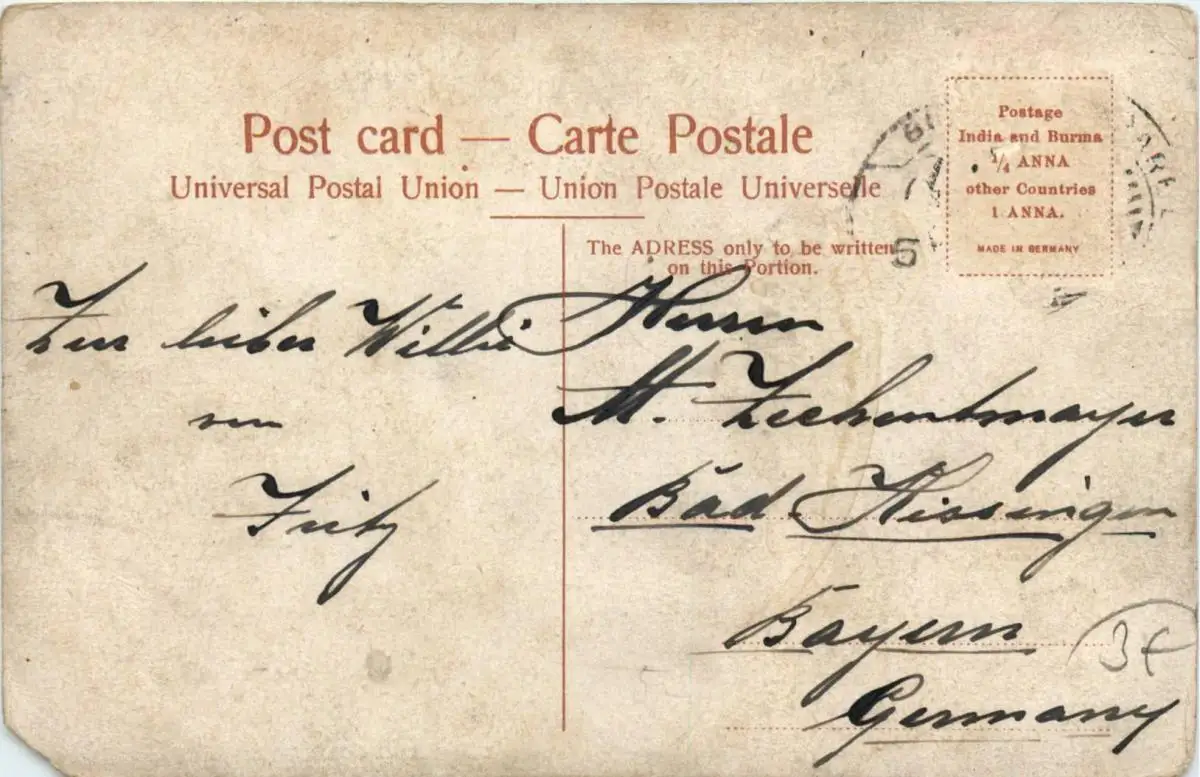 Post card — Carte Postale
Universal Postal Union — Union Postale Universelle
Postage
India and Burma
¼ ANNA
other Countries
1 ANNA.
MADE IN GERMANY
The ADRESS only to be written
on this Portion.
lieber Willi
von
Fritz
Herrn
M. Zechentmayer
Bad Kissingen
Bayern
Germany
3€